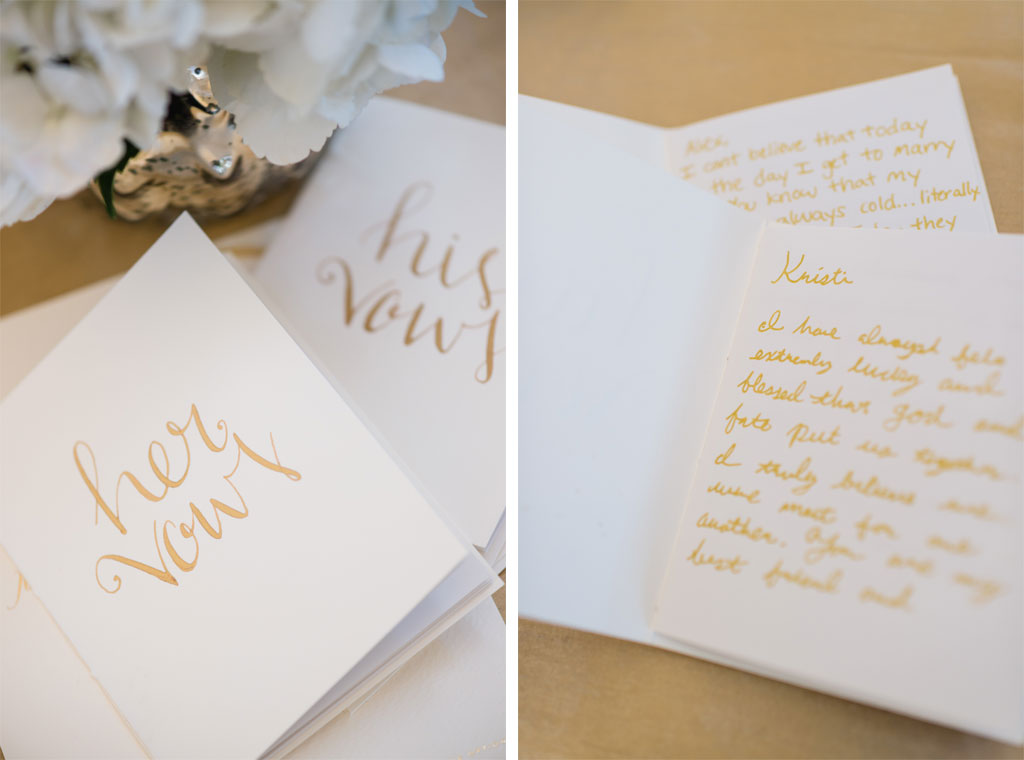 his
vows
her
vows
Alex,
I cant believe that today
the day I get to marry
you know that my
always cold...literally
they
Kristi
I have always felt
extremly lucky and
blessed that god and
fate put us together.
I truly believe we
were meant for one
another. You are my
best friend and